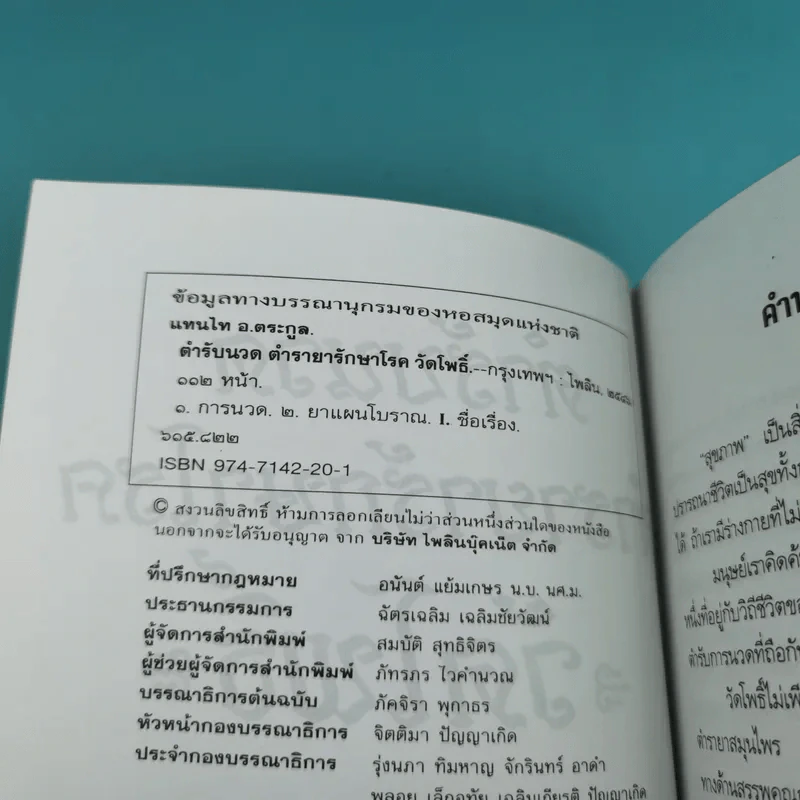 ข้อมูลทางบรรณานุกรมของหอสมุดแห่งชาติ
แทนไท อ.ตระกูล.
ตำรับนวด ตำรายารักษาโรค วัดโพธิ์.--กรุงเทพฯ : ไพลิน, ๒๕๔๖
๑๑๒ หน้า.
๑. การนวด. ๒. ยาแผนโบราณ. I. ชื่อเรื่อง.
๖๑๕.๘๒๒
ISBN 974-7142-20-1
© สงวนลิขสิทธิ์ ห้ามการลอกเลียนไม่ว่าส่วนหนึ่งส่วนใดของหนังสือ
นอกจากจะได้รับอนุญาต จาก บริษัท ไพลินบุ๊คเน็ต จำกัด
ที่ปรึกษากฎหมาย อนันต์ แย้มเกษร น.บ. นศ.ม.
ประธานกรรมการ ฉัตรเฉลิม เฉลิมชัยวัฒน์
ผู้จัดการสำนักพิมพ์ สมบัติ สุทธิจิตร
ผู้ช่วยผู้จัดการสำนักพิมพ์ ภัทรภร ไวคำนวณ
บรรณาธิการต้นฉบับ ภัคจิรา พุกาธร
หัวหน้ากองบรรณาธิการ จิตติมา ปัญญาเกิด
ประจำกองบรรณาธิการ รุ่งนภา ทิมหาญ จักรินทร์ อาดำ
พลอย เล็กอุทัย เฉลิมเกียรติ ปัญญาเกิด
คำน
"สุขภาพ" เป็นสิ่
ปรารถนาชีวิตเป็นสุขทั้ง
ได้ ถ้าเรามีร่างกายที่ไม่
มนุษย์เราคิดค้น
หนึ่งที่อยู่กับวิถีชีวิตขอ
ตำรับการนวดที่ถือกัน
วัดโพธิ์ไม่เพีย
ตำรายาสมุนไพร
ทางด้านสรรพคุณ